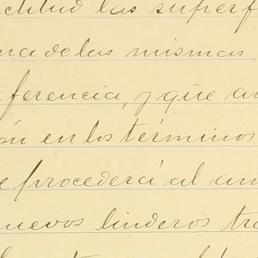 ctitud las superf
na de las mismas
ferencia, y que an
ón en los términos
e procederá al am
nuevos linderos tra